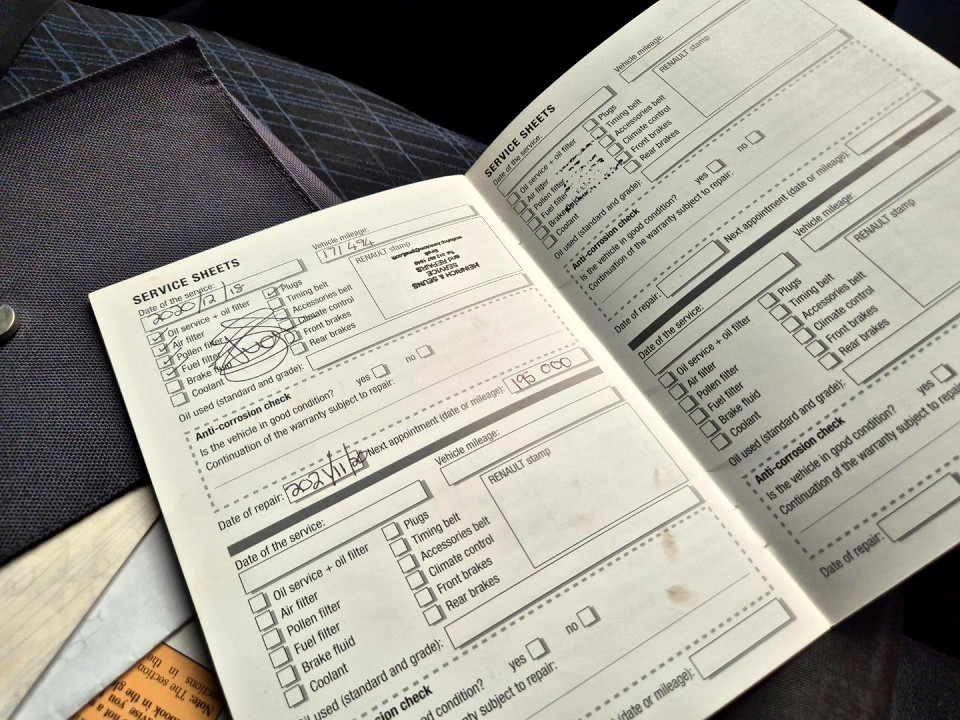 SERVICE SHEETS
Date of the service:
2020/12/15
Vehicle mileage:
171 494
Oil service + oil filter
Air filter
Pollen filter
Fuel filter
Brake fluid
Coolant
Plugs
Timing belt
Accessories belt
Climate control
Front brakes
Rear brakes
RENAULT stamp
HEINRICH & SEUNS
SERVICE
and REPAIRS
Oil used (standard and grade):
Anti-corrosion check
Is the vehicle in good condition? yes no
Continuation of the warranty subject to repair:
Date of repair:
Next appointment (date or mileage):
195 000
Date of the service:
Vehicle mileage:
Oil service + oil filter
Air filter
Pollen filter
Fuel filter
Brake fluid
Coolant
Plugs
Timing belt
Accessories belt
Climate control
Front brakes
Rear brakes
RENAULT stamp
Oil used (standard and grade):
check
good condition? yes no
subject to repair:
(date or mileage):
SERVICE SHEETS
Date of the service:
Vehicle mileage:
Oil service + oil filter
Air filter
Pollen filter
Fuel filter
Coolant
Plugs
Timing belt
Accessories belt
Climate control
Front brakes
Rear brakes
RENAULT stamp
Oil used (standard and grade):
Anti-corrosion check
Is the vehicle in good condition? yes no
Continuation of the warranty subject to repair:
Date of repair:
Next appointment (date or mileage):
Date of the service:
Vehicle mileage:
Oil service + oil filter
Air filter
Pollen filter
Fuel filter
Brake fluid
Coolant
Plugs
Timing belt
Accessories belt
Climate control
Front brakes
Rear brakes
RENAULT stamp
Oil used (standard and grade):
Anti-corrosion check
Is the vehicle in good condition? yes
Continuation of the warranty subject to
Date of repair:
Note: The section